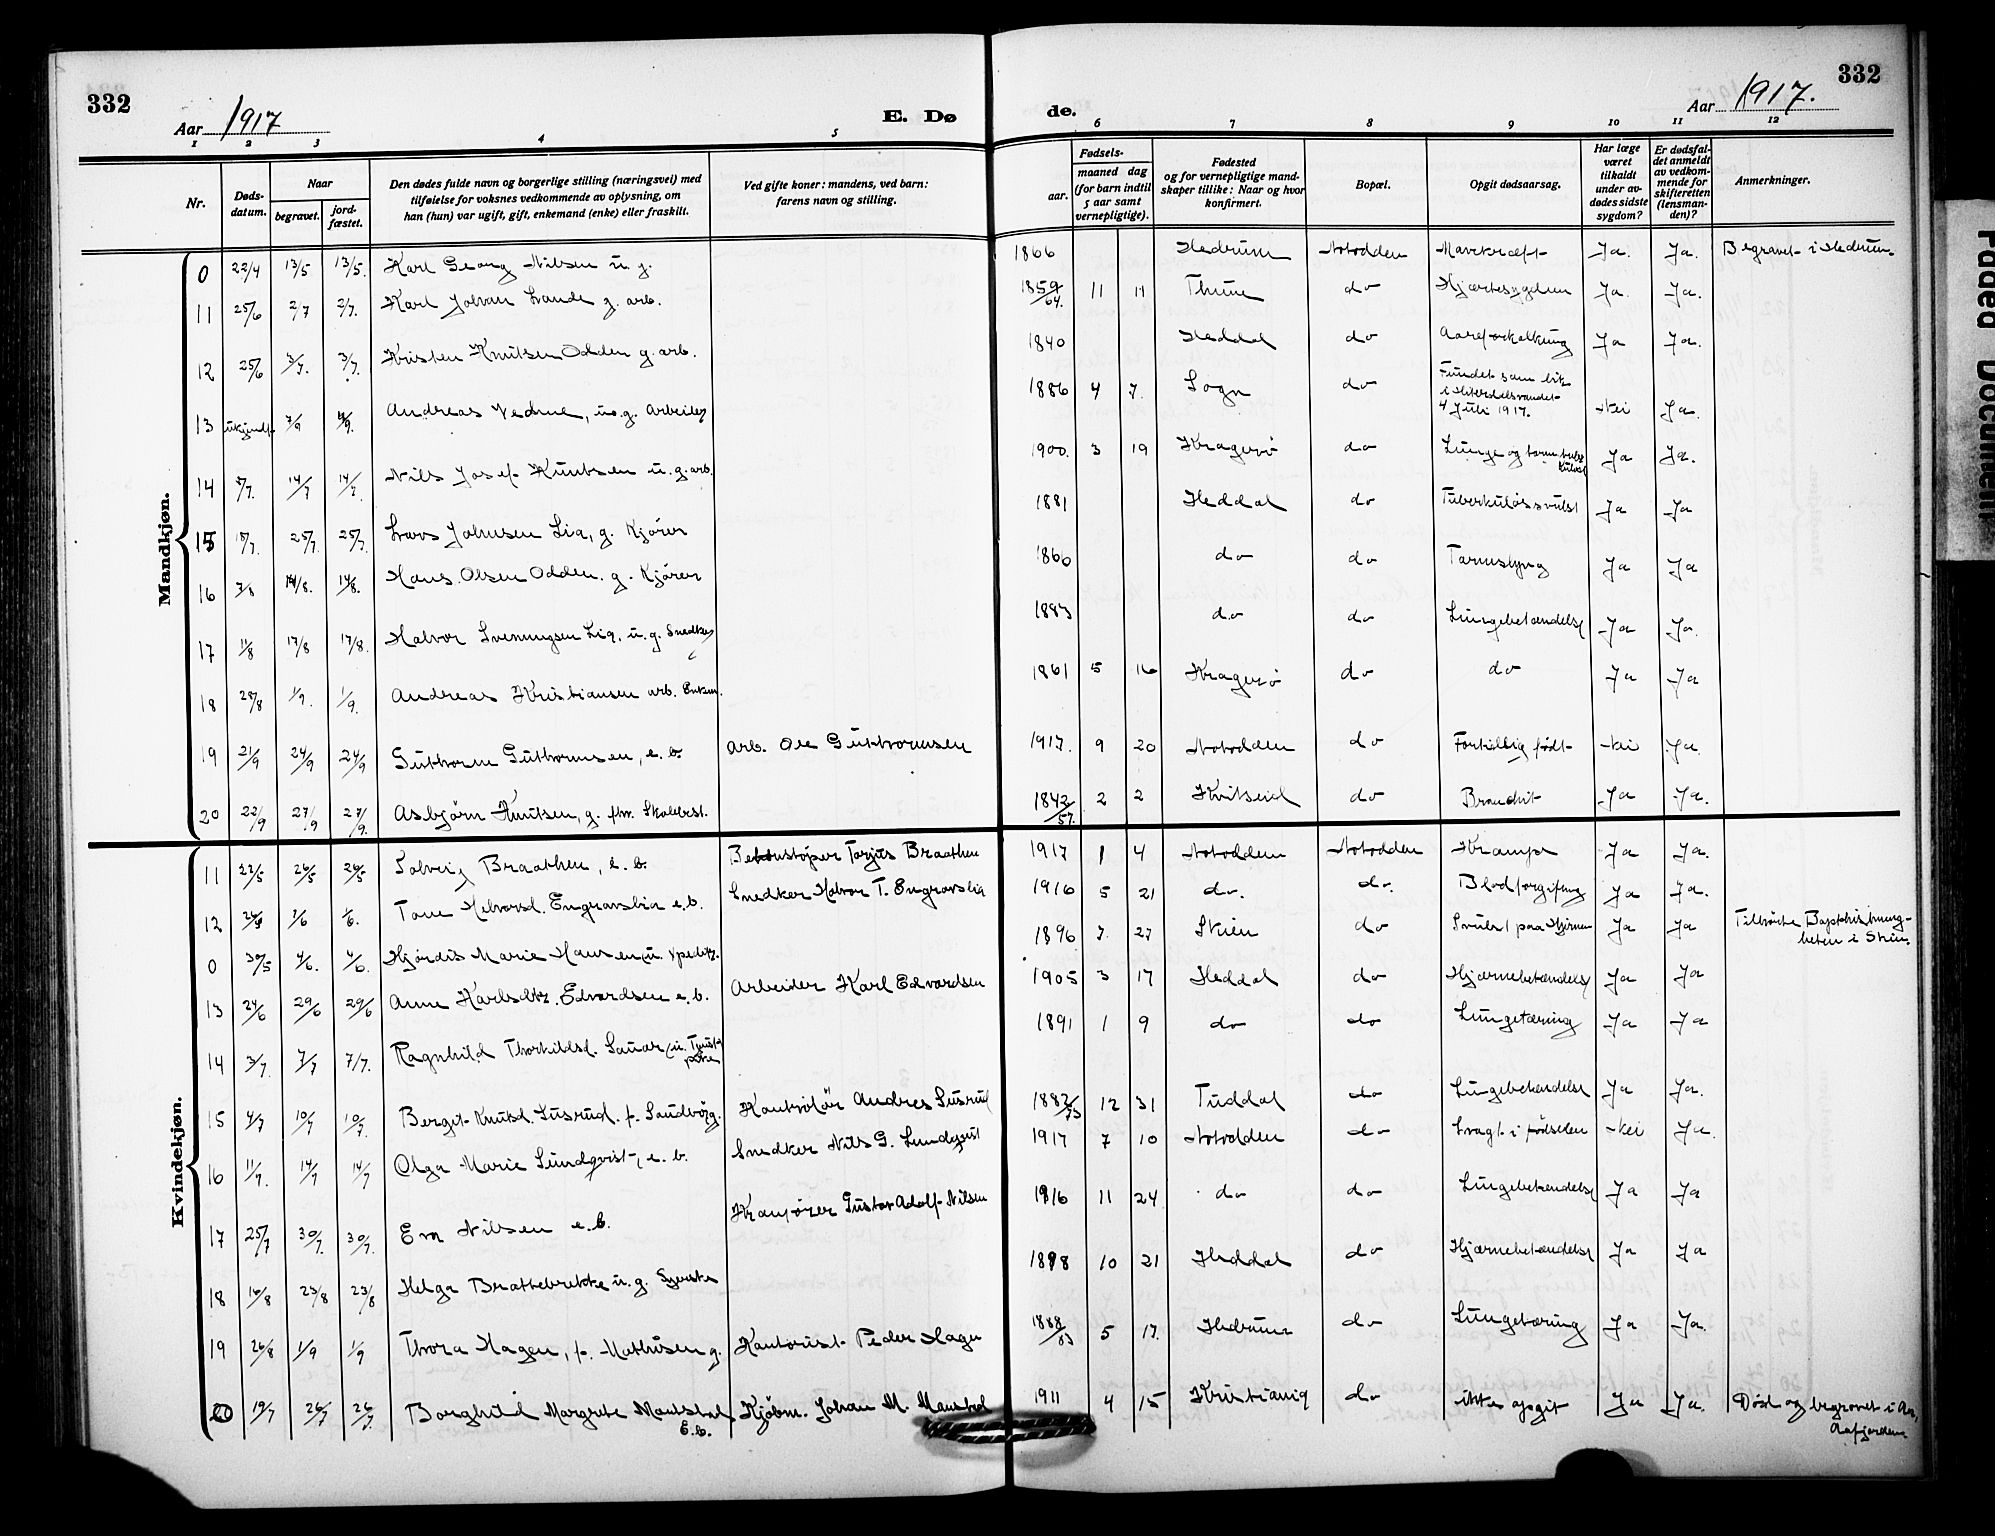 332
332
Aar 1917
E. Døde.
Aar 1917.
1 2 3 4 5 6 7 8 9 10 11 12
Nr.
Døds-
datum.
Naar
begravet.
jord-
fæstet.
Den dødes fulde navn og borgerlige stilling (næringsvei) med
tilføielse for voksnes vedkommende av oplysning, om
han (hun) var ugift, gift, enkemand (enke) eller fraskilt.
Ved gifte koner: mandens, ved barn:
farens navn og stilling.
Fødsels-
aar.
maaned dag
(for barn indtil
5 aar samt
vernepligtige).
Fødested
og for vernepligtige mand-
skaper tillike: Naar og hvor
konfirmert.
Bopæl.
Opgit dødsaarsag.
Har læge
været
tilkaldt
under av-
dødes sidste
sygdom?
Er dødsfal-
det anmeldt
av vedkom-
mende for
skifteretten
(lensman-
den)?
Anmerkninger.
Mandkjøn.
0 22/4 13/5 13/5. Karl Georg Nilsen u. g. 1866 Hedrum Notodden Mavekræft Ja. Ja. Begravet i Hedrum.
11 25/6 2/7 2/7. Karl Johan Lande g. arb. 1859/64. 11 11 do Hjærtesygdom Ja. Ja.
12 25/6 3/7. 3/7. Kristen Knutsen Odden g. arb. 1840 Heddal do Aareforkalkning Ja Ja.
13 ukjendt 7/9 Andreas Vedme, u.g. Arbeider 1886 4 7. Sogn do Fundet som lik
i Hiterdalsvandet
4 Juli 1917. Nei Ja.
14 14/7 14/7. Nils Josef Knutsen u. g. arb. 1900. 3 19 Kragerø do Lunge og tarm Ja Ja.
15 18/7. 25/7. 25/7. Lars Johnsen Lia, g. Kjører 1881 Heddal do Tuberkuløs svulst Ja Ja
16 7/8 14/8. 14/8. Hans Olsen Odden. g. Kjører 1860 do do Tarmslyng Ja Ja
17 11/8 17/8 17/8. Halvor Svenungsen Lia, u. g. Snedker 1883 do do Lungebetændelse Ja Ja.
18 28/8 1/9. 1/9. Andreas Kristiansen arb. Enkem. 1861 5 16 Kragerø do do Ja Ja
19 21/9 24/9 24/9 Guttorm Guttormsen, e. b. Arb. Ole Guttormsen 1917. 9 20 Notodden do Fortidlig født Nei Ja.
20 22/9 27/9 27/9. Asbjørn Knutsen, g. fhv. Skolebest. 1842/57. 2 2 Kviteseid do Brandvit Ja Ja.
Kvindekjøn.
11 22/5 26/5 26/5 Solveig Braathen, e. b. Betonstøper Torjus Braathen 1917 1 4 Notodden Notodden Krampe Ja Ja.
12 3/6 Tone Halvorsd. Engravslia e. b. Snedker Halvor T. Engravslia 1916 5 21 do. do. Blodforgiftning Ja Ja.
0 30/5 4/6. 4/6. Hjørdis Marie Hansen u. 1896 7. 27 Skien do Svulst paa Hjernen Ja Ja Tilhørte Baptistmenig-
heten i Skien.
13 24/6 29/6 29/6 Anne Karlsdtr. Edvardsen e. b. Arbeider Karl Edvardsen 1905 3 17 Heddal do Hjærnebetændelse Ja Ja
14 3/7 7/7 7/7. Ragnhild Thorkildsd. Sauar u. Tjeneste-
pike 1891 1 9 do do Lungetæring Ja Ja
15 4/7 10/7 10/7. Bergit Knutsd. Susrud f. Sandvog g. Kontrolør Andres Susrud 1882/73 12 31 Tuddal do Lungebetændelse Ja Ja.
16 11/7. 14/7 14/7 Olga Marie Lundqvist, e. b. Snedker Nils G. Lundqvist 1917 7 10 Notodden do Svagt i fødselen Nei Ja.
17 25/7 30/7. 30/7. Eva Nilsen e. b. Gustav Adolf Nilsen 1916 11 24 do do Lungebetændelse Ja Ja
18 16/8 23/8 23/8 Helga Brattebrekke u. g. Syerske 1898 10 21 Heddal do Hjærnebetændelse Ja Ja
19 26/8 1/9 1/9 Thora Hagen, f. Mathisen g. Kontorist Peder Hagen 1888/83 5 17. Hedrum do Lungetæring Ja Ja.
20 19/7 26/7 26/7. Borghild Margrete Maustad
E. b. Kjøbm. Johan M. Maustad 1911 4 15 Kristiania do ikke opgit Ja Ja. Død og begravet i Aa,
Aafjorden.